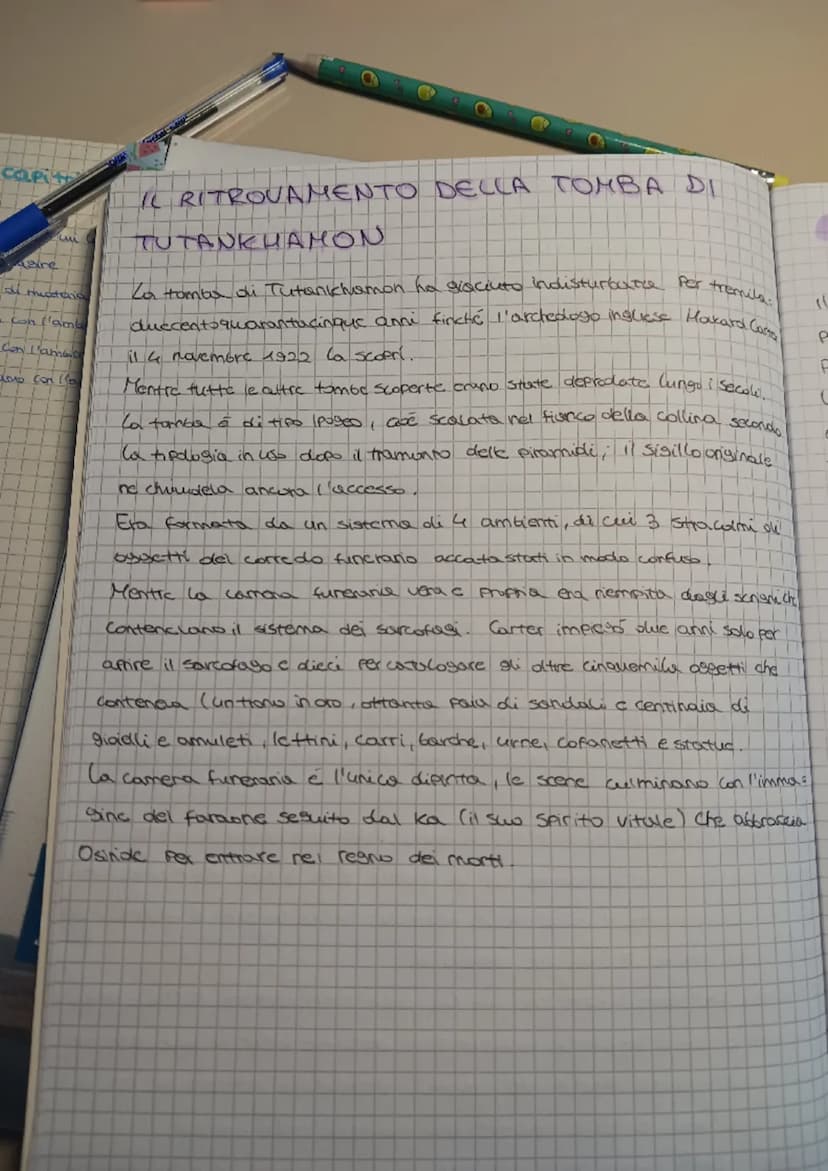 IL RITROVAMENTO DELLA TOMBA DI
TUTANKHAMON
La tomba di Tutankhamon ha giaciuto indisturbata per tremila=
duecentoquarantacinque anni finché l'archeologo inglese Howard Carter
il 4 novembre 1922 la scoprì.
Mentre tutte le altre tombe scoperte erano state depredate lungo i secoli.
La tomba è di tipo ipogeo, cioè scavata nel fianco della collina secondo
la tipologia in uso dopo il tramonto delle piramidi; il sigillo originale
ne chiudeva ancora l'accesso.
Era formata da un sistema di 4 ambienti, di cui 3 stracolmi di
oggetti del corredo funerario accatastati in modo confuso.
Mentre la camera funeraria vera e propria era riempita dagli scrigni che
contenevano il sistema dei sarcofagi. Carter impiegò due anni solo per
aprire il sarcofago e dieci per catalogare gli oltre cinquemila oggetti che
conteneva (un trono in oro, ottanta paia di sandali e centinaia di
gioielli e amuleti, lettini, carri, barche, urne, cofanetti e statue.
La camera funeraria è l'unica dipinta, le scene culminano con l'imma=
gine del faraone seguito dal ka (il suo spirito vitale) che abbraccia
Osiride per entrare nel regno dei morti.
capit
di
con l'amb
con l'amb
con l'a